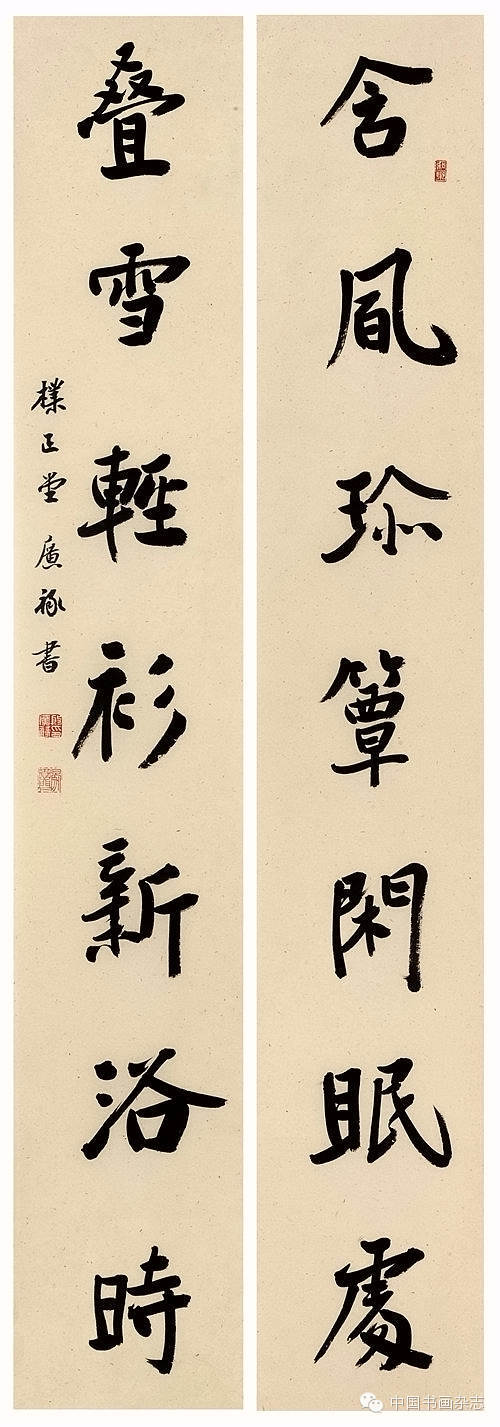 含風珎簟閑眠處
叠雪輕衫新浴時
樸正堂廣祿書
中国书画杂志